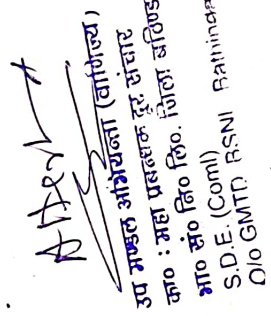 उप मण्डल अभियन्ता (वाणिज्य)
का० : महा प्रबन्धक दूर संचार
भा० सं० नि० लि०. जिला बठिण्डा
S.D.E. (Coml)
O/o GMTD BSNL Bathinda